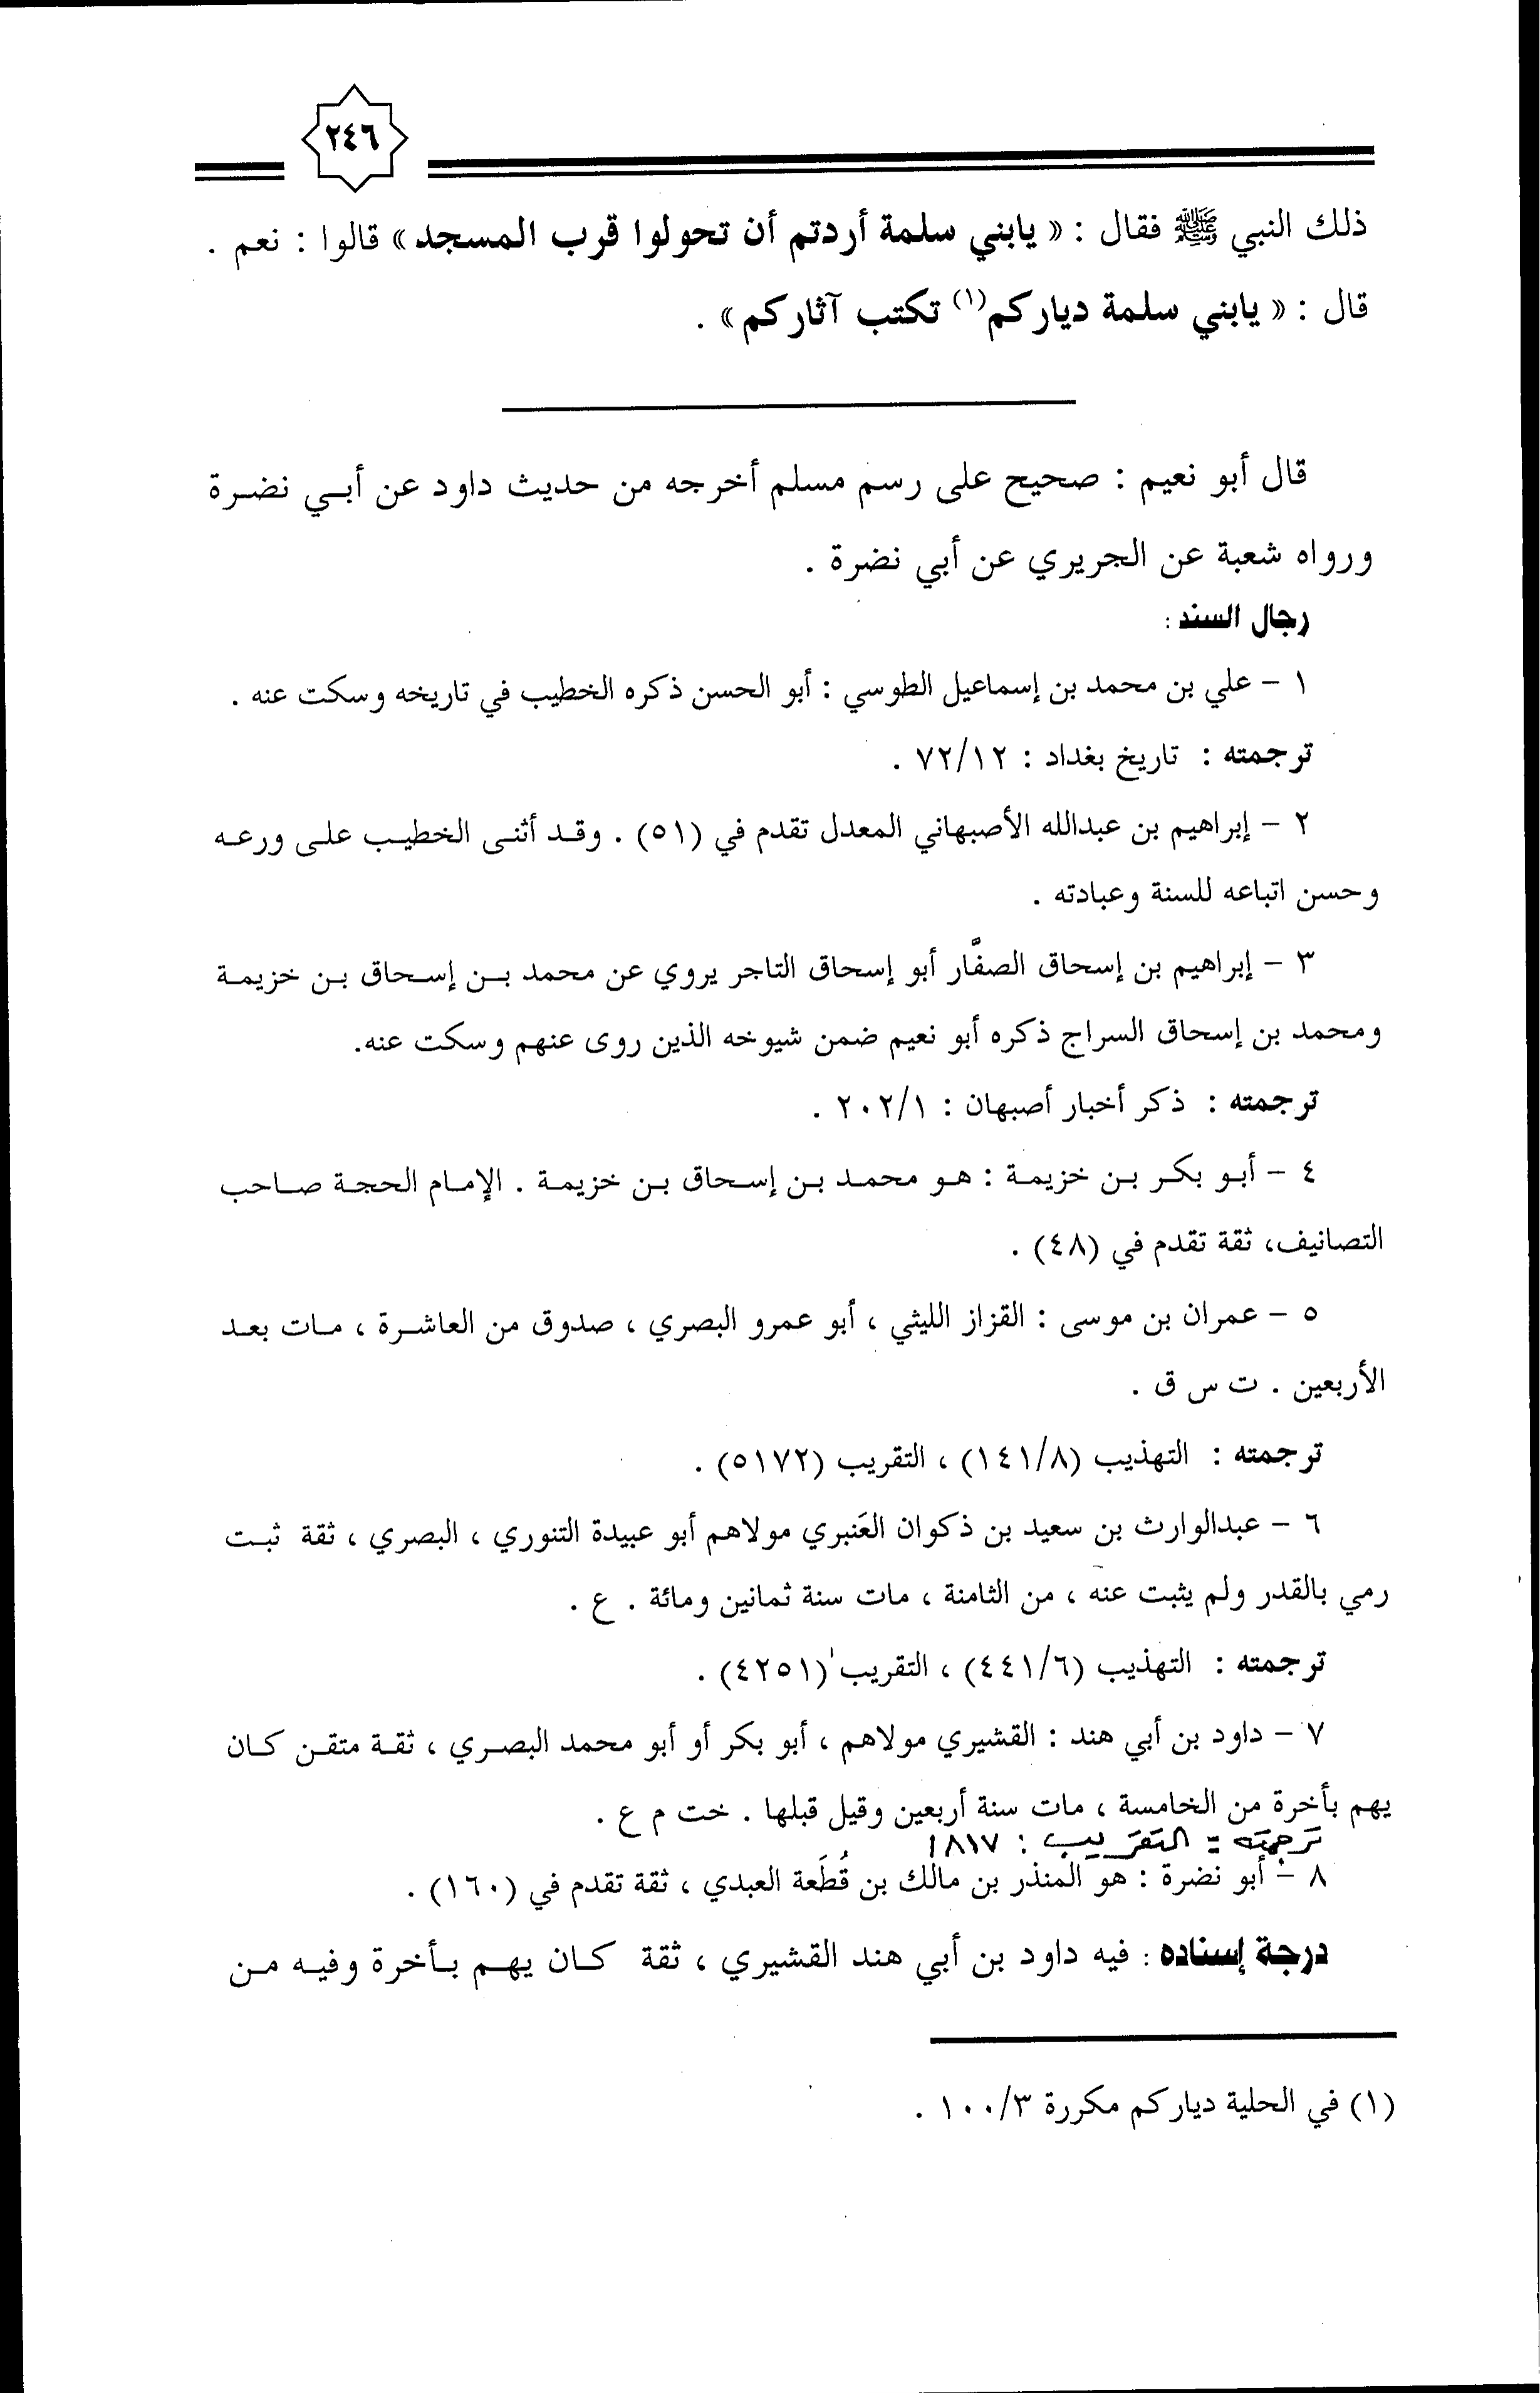 ٢٤٦
ذلك النبي ﷺ فقال : « يابني سلمة أردتم أن تحولوا قرب المسجد » قالوا : نعم .
قال : « يابني سلمة دياركم(١) تكتب آثاركم » .
قال أبو نعيم : صحيح على رسم مسلم أخرجه من حديث داود عن أبي نضرة
ورواه شعبة عن الجريري عن أبي نضرة .
رجال السند :
١ - علي بن محمد بن إسماعيل الطوسي : أبو الحسن ذكره الخطيب في تاريخه وسكت عنه .
ترجمته : تاريخ بغداد : ٧٢/١٢ .
٢ - إبراهيم بن عبدالله الأصبهاني المعدل تقدم في (٥١) . وقد أثنى الخطيب على ورعه
وحسن اتباعه للسنة وعبادته .
٣ - إبراهيم بن إسحاق الصفَّار أبو إسحاق التاجر يروي عن محمد بن إسحاق بن خزيمة
ومحمد بن إسحاق السراج ذكره أبو نعيم ضمن شيوخه الذين روى عنهم وسكت عنه.
ترجمته : ذكر أخبار أصبهان : ٢٠٢/١ .
٤ - أبو بكر بن خزيمة : هو محمد بن إسحاق بن خزيمة . الإمام الحجة صاحب
التصانيف، ثقة تقدم في (٤٨) .
٥ - عمران بن موسى : القزاز الليثي ، أبو عمرو البصري ، صدوق من العاشرة ، مات بعد
الأربعين . ت س ق .
ترجمته : التهذيب (١٤١/٨) ، التقريب (٥١٧٢) .
٦ - عبدالوارث بن سعيد بن ذكوان العَنبري مولاهم أبو عبيدة التنوري ، البصري ، ثقة ثبت
رمي بالقدر ولم يثبت عنه ، من الثامنة ، مات سنة ثمانين ومائة . ع .
ترجمته : التهذيب (٤٤١/٦) ، التقريب (٤٢٥١) .
٧ - داود بن أبي هند : القشيري مولاهم ، أبو بكر أو أبو محمد البصري ، ثقة متقن كان
يهم بأخرة من الخامسة ، مات سنة أربعين وقيل قبلها . خت م ع .
ترجمته = التقريب : ١٨١٧
٨ - أبو نضرة : هو المنذر بن مالك بن قُطَعة العبدي ، ثقة تقدم في (١٦٠) .
درجة إسناده : فيه داود بن أبي هند القشيري ، ثقة كان يهم بأخرة وفيه من
(١) في الحلية دياركم مكررة ١٠٠/٣ .